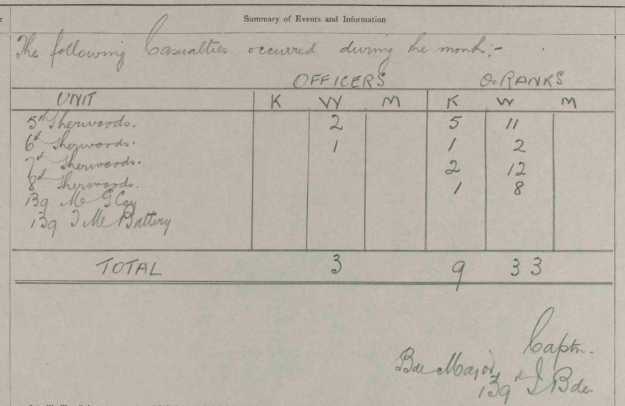 Summary of Events and Information
The following Casualties occured during he month:-
OFFICERS O.RANKS
UNIT K W M K W M
5th Sherwoods. 2 5 11
6th Sherwoods. 1 1 2
7th Sherwoods. 2 12
8th Sherwoods. 1 8
139 M G Coy
139 T M Battery
TOTAL 3 9 33
Captn.
Bde Major,
139th I Bde